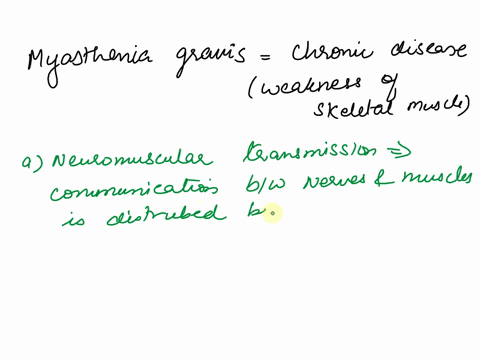 Myasthenia gravis = chronic disease
(weakness of
skeletal muscle)
a) Neuromuscular transmission ⇒
communication b/w nerves & muscles
is distrubed b.